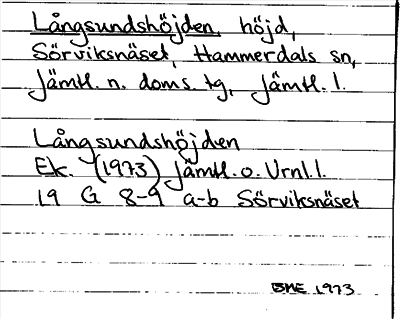 Långsundshöjden, höjd,
Sörviksnäset, Hammerdals sn,
Jämtl. n. doms. tg, Jämtl. l.
Långsundshöjden
Ek. (1973) Jämtl. o. Vrnl. l.
19 G 8-9 a-b Sörviksnäset
BME 1973